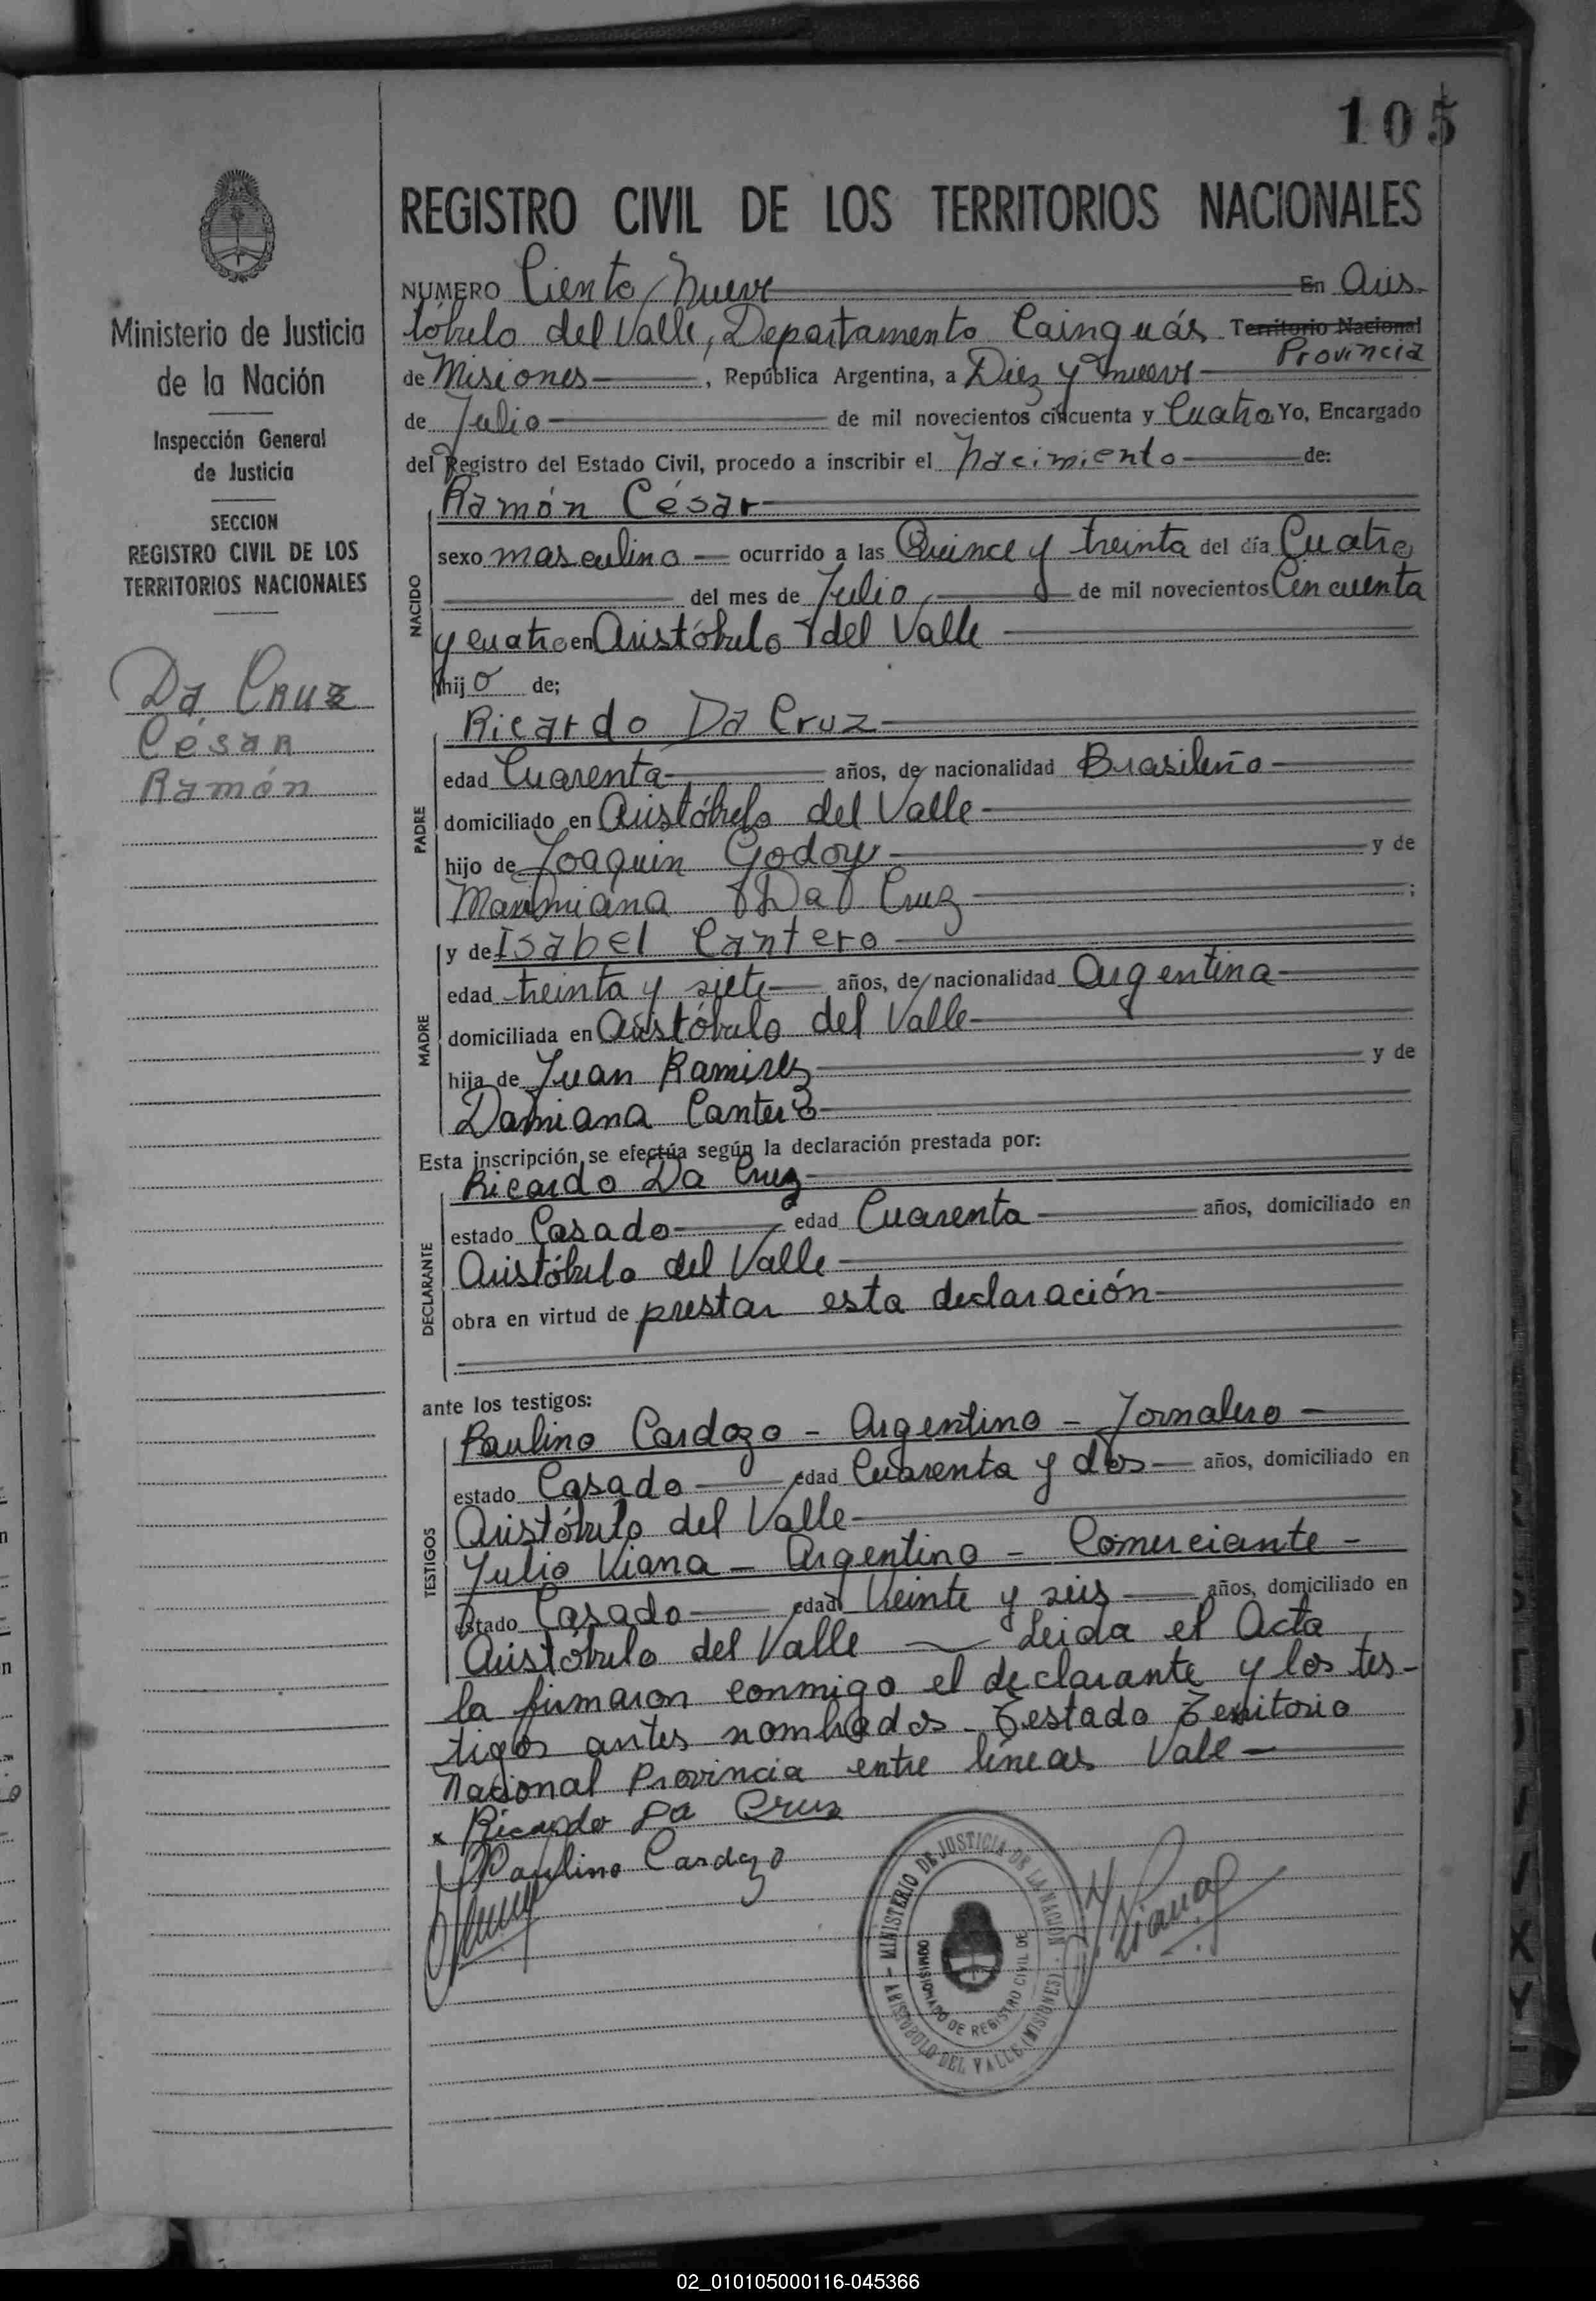 105
REGISTRO CIVIL DE LOS TERRITORIOS NACIONALES
Ministerio de Justicia
de la Nación
Inspección General
de Justicia
SECCION
REGISTRO CIVIL DE LOS
TERRITORIOS NACIONALES
Da Cruz
César
Ramón
NUMERO Ciento Nueve En Aris-
tóbulo del Valle, Departamento Cainguás Territorio Nacional
Provincia
de Misiones , República Argentina, a Diez y nueve
de Julio de mil novecientos cincuenta y Cuatro Yo, Encargado
del Registro del Estado Civil, procedo a inscribir el Nacimiento de:
NACIDO
Ramón César
sexo masculino ocurrido a las Quince y treinta del día Cuatro
del mes de Julio de mil novecientos Cincuenta
y cuatro en Aristóbulo del Valle
hijo de;
PADRE
Ricardo Da Cruz
edad Cuarenta años, de nacionalidad Brasileño
domiciliado en Aristóbulo del Valle
hijo de Joaquin Godoy y de
Maximiana Da Cruz ;
MADRE
y de Isabel Cantero
edad treinta y siete años, de nacionalidad Argentina
domiciliada en Aristóbulo del Valle
hija de Juan Ramirez y de
Damiana Cantero
Esta inscripción se efectúa según la declaración prestada por:
DECLARANTE
Ricardo Da Cruz
estado Casado edad Cuarenta años, domiciliado en
Aristóbulo del Valle
obra en virtud de prestar esta declaración
ante los testigos:
TESTIGOS
Paulino Cardozo - Argentino - Jornalero -
estado Casado edad Cuarenta y dos años, domiciliado en
Aristóbulo del Valle
Julio Viana - Argentino - Comerciante -
estado Casado edad Veinte y seis años, domiciliado en
Aristóbulo del Valle Leida el Acta
la firmaron conmigo el declarante y los tes-
tigos antes nombrados - Testado Territorio
Nacional Provincia entre líneas Vale -
x Ricardo Da Cruz
Paulino Cardozo
Viana
MINISTERIO DE JUSTICIA DE LA NACIÓN
COMISIONADO DE REGISTRO CIVIL DE
ARISTOBULO DEL VALLE (MISIONES)
02_010105000116-045366